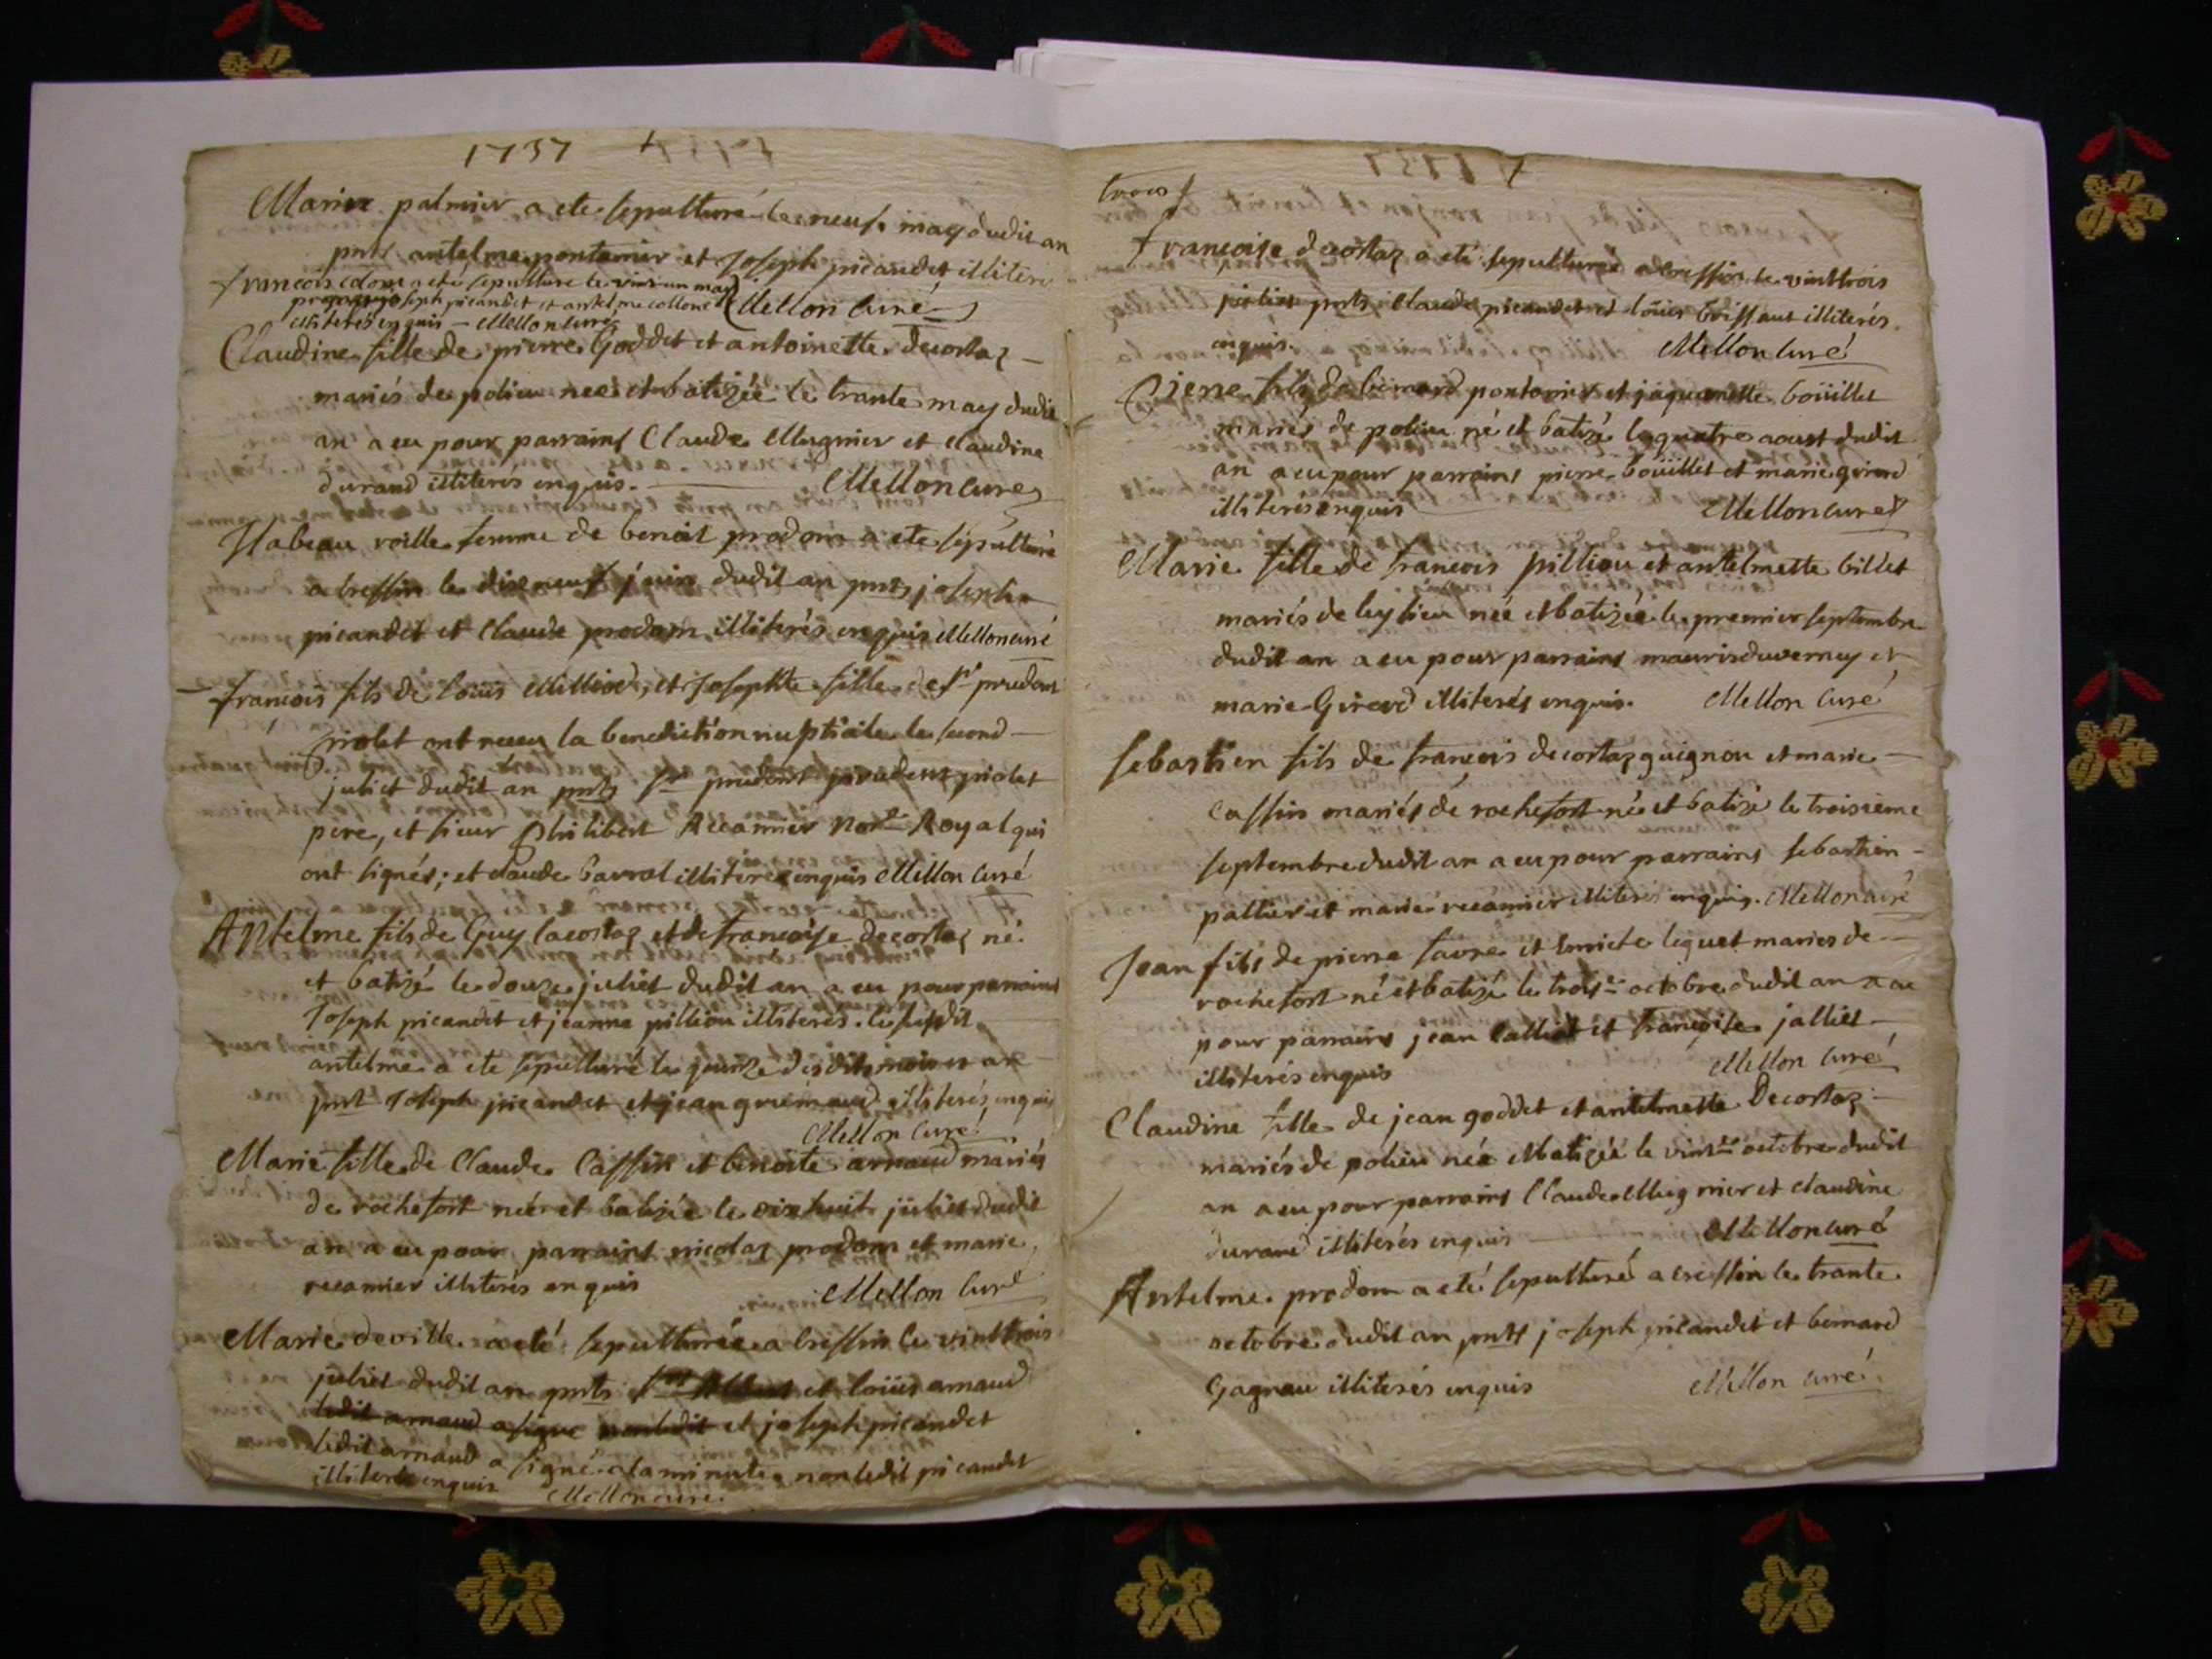 1737
Marie palmier a eté sepulturé le neuf may dudit an
pnts antelme pontanier et Joseph picaudet illiteré
francois colom a eté sepulture le vint un may
joseph picaudet et antelme collone Mellon Curé
illiterés enquis - Mellon curé
Claudine fille de pierre Goddet et antoinette decortaz -
mariés de polieu neé et batizée le trante may dudit
an a eu pour parrains Claude Mugnier et Claudine
durand illiterés enquis. Mellon Curé
Isabeau voille femme de benoit prodom a eté sepulturé
a bressin le dixneuf juin dudit an pnts joseph
picaudet et Claude prodom illiterés enquis Mellon curé
- francois fils de louis Milliod, et Josephte fille de sr prudent
priolet ont receu la benediction nuptiale le second -
juliet dudit an pnts sr prudent priolet
pere, et sieur Philibert Recamier Nore Royal qui
ont signés; et claude barral illiteré enquis Mellon Curé
Antelme fils de Guy lacortaz et de francoise decortaz né
et batizé le douze juliet dudit an a eu pour parrains
Joseph picaudet et jeanne pilliou illiterés. le susdit
antelme a eté sepulturé le quinze desdits mois et an
pnt Joseph picaudet et jean grimaud illiterés enquis
Mellon Curé
Marie fille de Claude Cassin et benoite arnaud mariés
de rochefort neé et batizée le dixhuit juliet dudit
an a eu pour parrains nicolaz prodom et marie
recamier illiterés enquis Mellon Curé
Marie deville a eté sepulturée a bressin le vinttrois
juliet dudit an pnts et loüis arnaud
ledit arnaud a signe nonledit et joseph picaudet
ledit arnaud a signé a la minute non ledit picaudet
illiteré enquis Mellon curé
trois
francoise decortaz a eté sepulturée a bressin le vinttrois
juliet pnts Claude picaudet et loüis brissaut illiterés
enquis. Mellon Curé
Pierre fils de bernard pontanier et jaquemette boüillet
mariés de polieu né et batizé le quatre aoust dudit
an a eu pour parrains pierre boüillet et marie girerd
illiterés enquis Mellon curé
Marie fille de francois pilliou et antelmette billet
mariés de leylieu neé et batizée le premier septembre
dudit an a eu pour parrains mauris duverney et
marie Girerd illiterés enquis. Mellon Curé
Sebastien fils de francois decortaz guignon et marie -
Cassin mariés de rochefort né et batizé le troisieme
septembre dudit an a eu pour parrains sebastien -
pallier et marie recamier illiterés enquis. Mellon curé
Jean fils de pierre favre et benoite liquet mariés de -
rochefort né et batizé le trois octobre dudit an a eu
pour parrains jean Calliet et francoise jalliet -
illiterés enquis Mellon Curé
Claudine fille de jean goddet et antelmette Decortaz -
mariés de polieu neé et batizée le vint octobre dudit
an a eu pour parrains Claude Mugnier et claudine
durand illiterés enquis Mellon curé
Antelme prodom a eté sepulturé a bressin le trante
octobre dudit an pnts joseph picaudet et bernard
Gagneau illiterés enquis Mellon curé